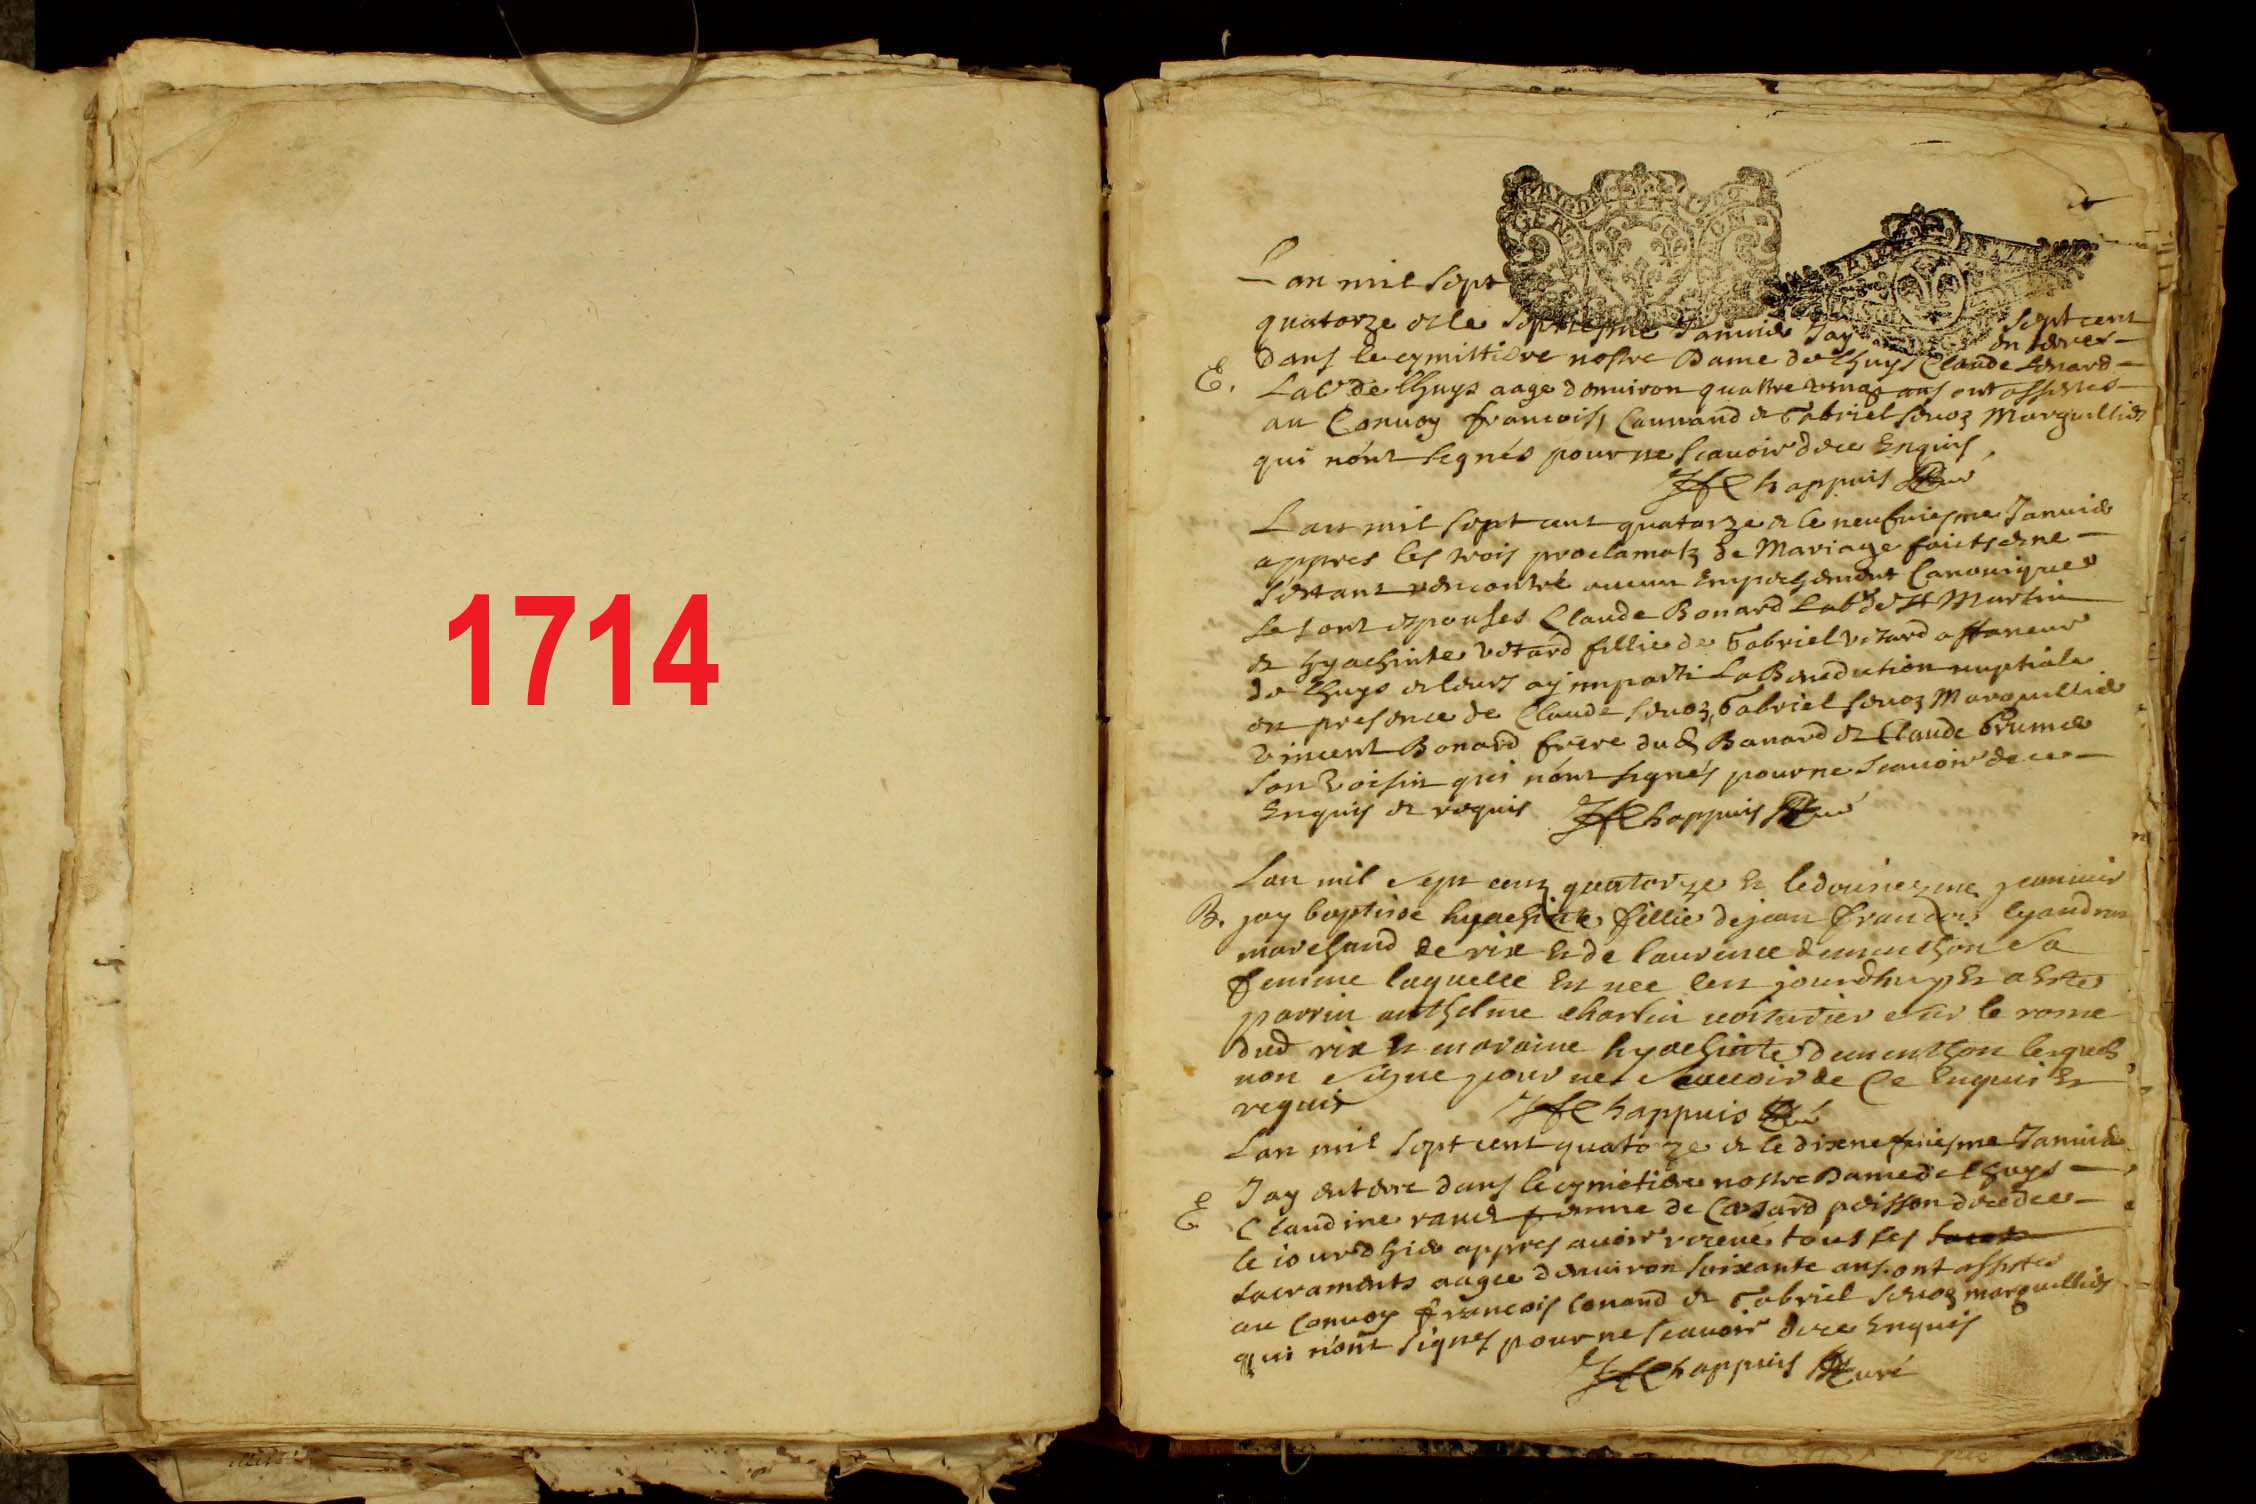 1714
Lan mil sept
quatorze & le septiesme Janvier Jay sept cent
dans le cymittiere nostre Dame de Lhuys Claude en terre
E. Labr de Lhuys aage denuiron quattre vingt ans ont assistes
au Conuoy francois & Gabriel Marguillier
qui n'ont signés pour ne scauoir de ce Enquis
Chappuis Curé
Lan mil sept cent quatorze & le neufuiesme Januier
appres les trois proclamatz de Mariage faictes & ne
sestant rencontré aucun Empechement Canonique
se sont espousés Claude Bonard Labr de St Martin
& hyachinte vetard fillie de Gabriel vetard affaneur
de Lhuys & leurs ay imparti La Benediction nuptiale
en presence de Claude Gabriel Marguillier
Vincent Bonard frere dud Bonard & Claude
son Voisin qui n'ont signés pour ne scauoir de ce
Enquis & requis Chappuis Curé
Lan mil sept cent quatorze & le douziezme jeanuier
B. jay baptise hyachinte fillie de jean francois lyandras
marchand de rix & de laurence sa
femme laquelle est nee cest jourdhuy & a este
parrin anthelme charlin sur le rosne
dud rix & maraine hyachinte lesquels
non signe pour ne scauoir de Ce Enquis &
requis Chappuis Curé
Lan mil sept cent quatorze & le dixneufuiesme Januier
E Jay enterré dans le cymetiere nostre Dame de Lhuys
Claudine femme de poisson decedee
le iourdhier appres auoir receue tous les
sacraments aagee denuiron soixante ans. ont assistes
au Conuoy francois & Gabriel marguillier
qui n'ont signes pour ne scauoir de ce Enquis
Chappuis Curé